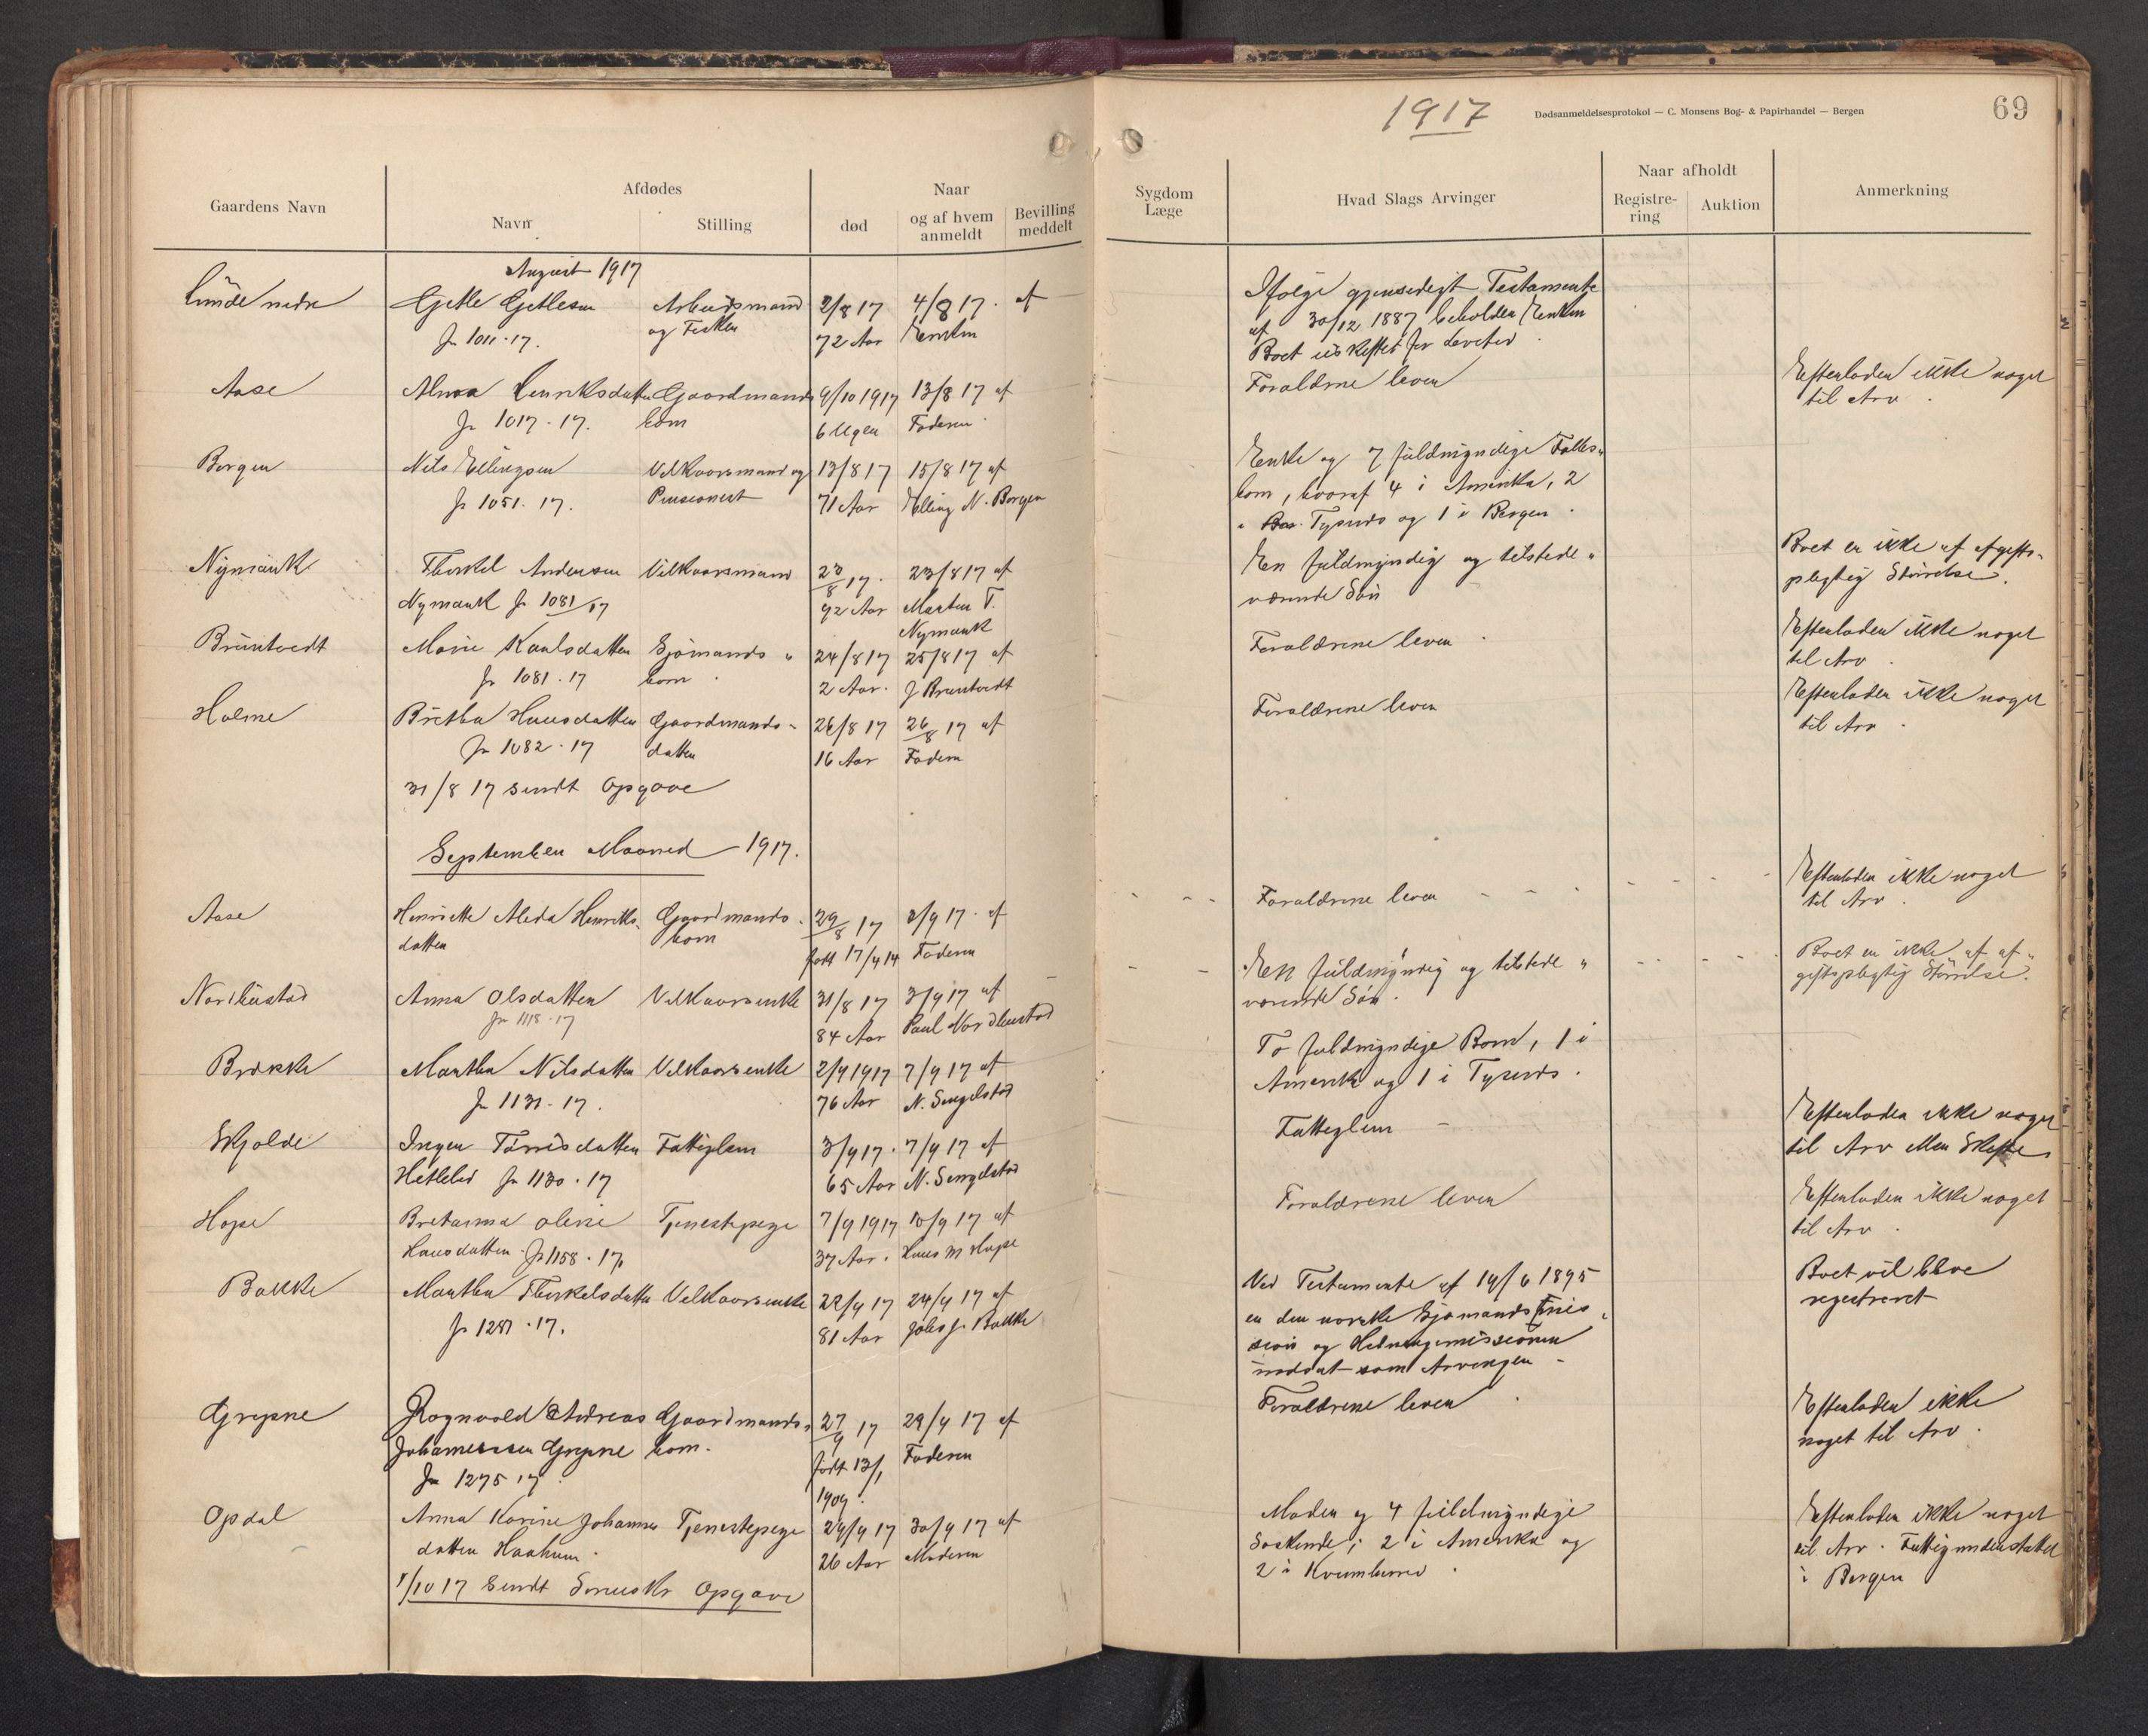 1917
Dødsanmeldelsesprotokol — C. Monsens Bog- & Papirhandel — Bergen
69
Gaardens Navn
Afdødes
Navn
Stilling
Naar
død
og af hvem anmeldt
Bevilling meddelt
Sygdom
Læge
Hvad Slags Arvinger
Naar afholdt
Registrering
Auktion
Anmerkning
August 1917
Lunde nedre
Gjetle Gjetlesen
Jr 1011-17.
Arbeidsmand
og Fisker
2/8 17
72 Aar
4/8 17. af
Enken
Ifølge gjensidigt Testamente
af 30/12 1887 beholder Enken
Boet uskiftet for Levetid.
Aase
Henriksdatter
Jr 1017-17.
Gaardmands
barn
9/10 1917
6 Uger
13/8 17 af
Faderen
Forældrene lever
Efterlader ikke noget
til Arv.
Borgen
Nils Ellingsen
Jr 1051. 17.
Vilkaarsmand og
Pensionist
13/8 17
71 Aar
15/8 17 af
Elling N. Borgen
Enke og 7 fuldmyndige Fælles-
børn, hvoraf 4 i Amerika, 2
i Tysnes og 1 i Bergen.
Nymark
Therkel Andersen
Nymark Jr 1081/17
Vilkaarsmand
23/8 17.
92 Aar
23/8 17 af
Marten T.
Nymark
En fuldmyndig og tilstede-
værende Søn
Boet er ikke af afgifts-
pligtig Størrelse.
Bruntvedt
Marie Karlsdatter
Jr 1081. 17
Sjømands-
barn
24/8 17
2 Aar.
25/8 17 af
J Bruntvedt
Forældrene lever
Efterlader ikke noget
til Arv.
Holme
Bretha Hansdatter
Jr 1082. 17
Gaardmands-
datter
26/8 17
16 Aar
26/8 17 af
Faderen
Forældrene lever
Efterlader ikke noget
til Arv.
31/8 17 sendt Opgave
September Maaned 1917.
Aase
Henriette Alida Henriks-
datter
Gaardmands-
barn
29/8 17
født 17/4 14
2/9 17. af
Faderen
Forældrene lever
Efterlader ikke noget
til Arv.
Nordhustad
Anna Olsdatter
Jr 1118. 17
Vilkaarsenke
31/8 17
84 Aar
3/9 17 af
Paul Nordhustad
En fuldmyndig og tilstede-
værende Søn.
Boet er ikke af af-
giftspligtig Størrelse.
Brække
Martha Nilsdatter
Jr 1131-17.
Vilkaarsenke
2/9 1917
76 Aar
7/9 17 af
N. Singelstad
To fuldmyndige Børn, 1 i
Amerika og 1 i Tysnes.
Skjolde
Inger Tørrisdatter
Hetlelid Jr 1130. 17
Fattiglem
3/9 17.
65 Aar
7/9 17 af
N. Singelstad
Fattiglem
Efterlader ikke noget
til Arv
Hope
Olene
Hansdatter. Jr 1158. 17.
Tjenestepige
7/9 1917
37 Aar.
10/9 17 af
Hans M Hope
Forældrene lever
Efterlader ikke noget
til Arv.
Bakke
Martha Therkelsdatter
Jr 1281. 17.
Vilkaarsenke
22/9 17
81 Aar
24/9 17 af
Johs J. Bakke
Ved Testamente af 19/6 1895
er den norske Sjømandsmis-
sion og Hedningemissionen
indsat som Arvinger
Boet vil blive
registreret
Gripne
Ragnvald Andreas
Johannessen Gripne
Jr 1275. 17.
Gaardmands-
barn.
27/9 17
født 13/1
1909.
29/9 17 af
Faderen
Forældrene lever
Efterlader ikke
noget til Arv.
Opdal
Anna Karine Johannes
datter Haaheim
Tjenestepige
29/9 17
26 Aar
30/9 17 af
Moderen
Moder og 4 fuldmyndige
Søskende; 2 i Amerika og
2 i Kvamherred.
Efterlader ikke noget
til Arv. Fattigunderstøttet
i Bergen
1/10 17 sendt Sorenskr Opgave